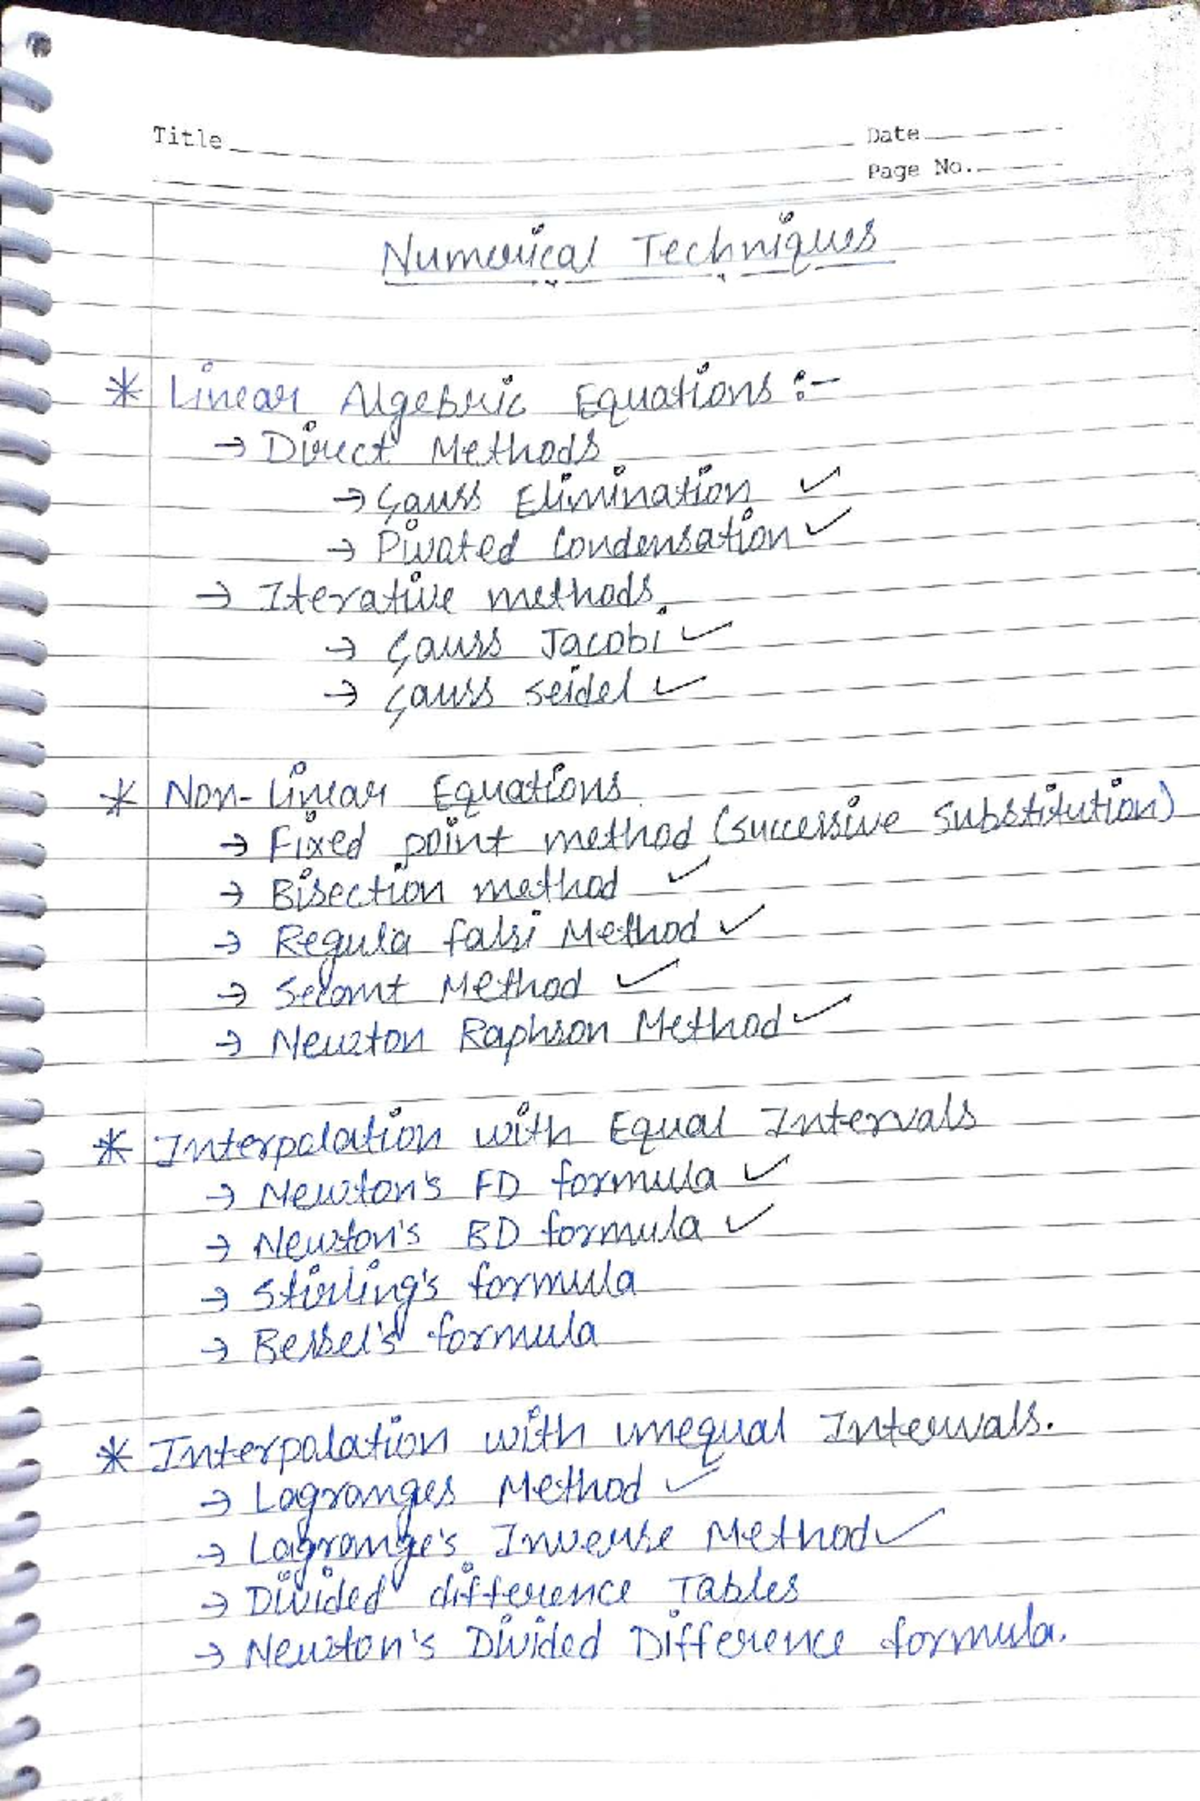 Title
Date
Page No.
Numerical Techniques
* Linear Algebric Equations :-
→ Direct Methods
→ Gauss Elimination ✓
→ Pivoted Condensation ✓
→ Iterative methods.
→ Gauss Jacobi ✓
→ Gauss Seidel ✓
* Non-Linear Equations
→ Fixed point method (successive substitution)
→ Bisection method ✓
→ Regula falsi Method ✓
→ Secant Method ✓
→ Newton Raphson Method ✓
* Interpolation with Equal Intervals
→ Newton's FD formula ✓
→ Newton's BD formula ✓
→ Stirling's formula
→ Bessel's formula
* Interpolation with unequal Intervals.
→ Lagranges Method ✓
→ Lagrange's Inverse Method ✓
→ Divided difference Tables
→ Newton's Divided Difference formula.